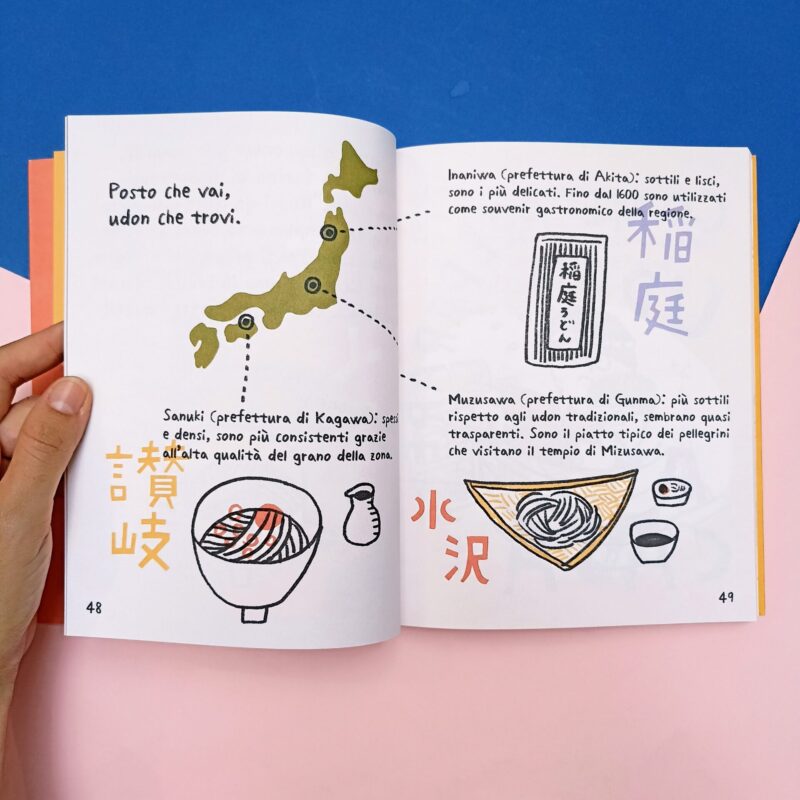 Posto che vai,
udon che trovi.
Sanuki (prefettura di Kagawa): spessi
e densi, sono più consistenti grazie
all'alta qualità del grano della zona.
讃岐
48
Inaniwa (prefettura di Akita): sottili e lisci,
sono i più delicati. Fino dal 1600 sono utilizzati
come souvenir gastronomico della regione.
稲庭
稲庭うどん
Muzusawa (prefettura di Gunma): più sottili
rispetto agli udon tradizionali, sembrano quasi
trasparenti. Sono il piatto tipico dei pellegrini
che visitano il tempio di Mizusawa.
水沢
49